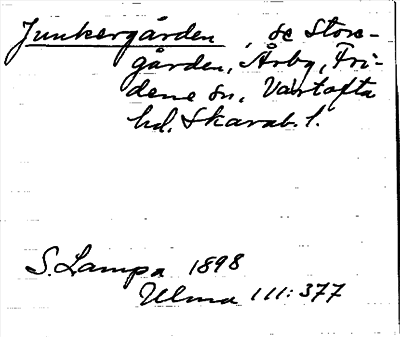 Junkergården, se Store-
gården, Årby, Fri-
dene sn, Vartofta
hd. Skarab. l.
S. Lampa 1898
Ulma 111:377